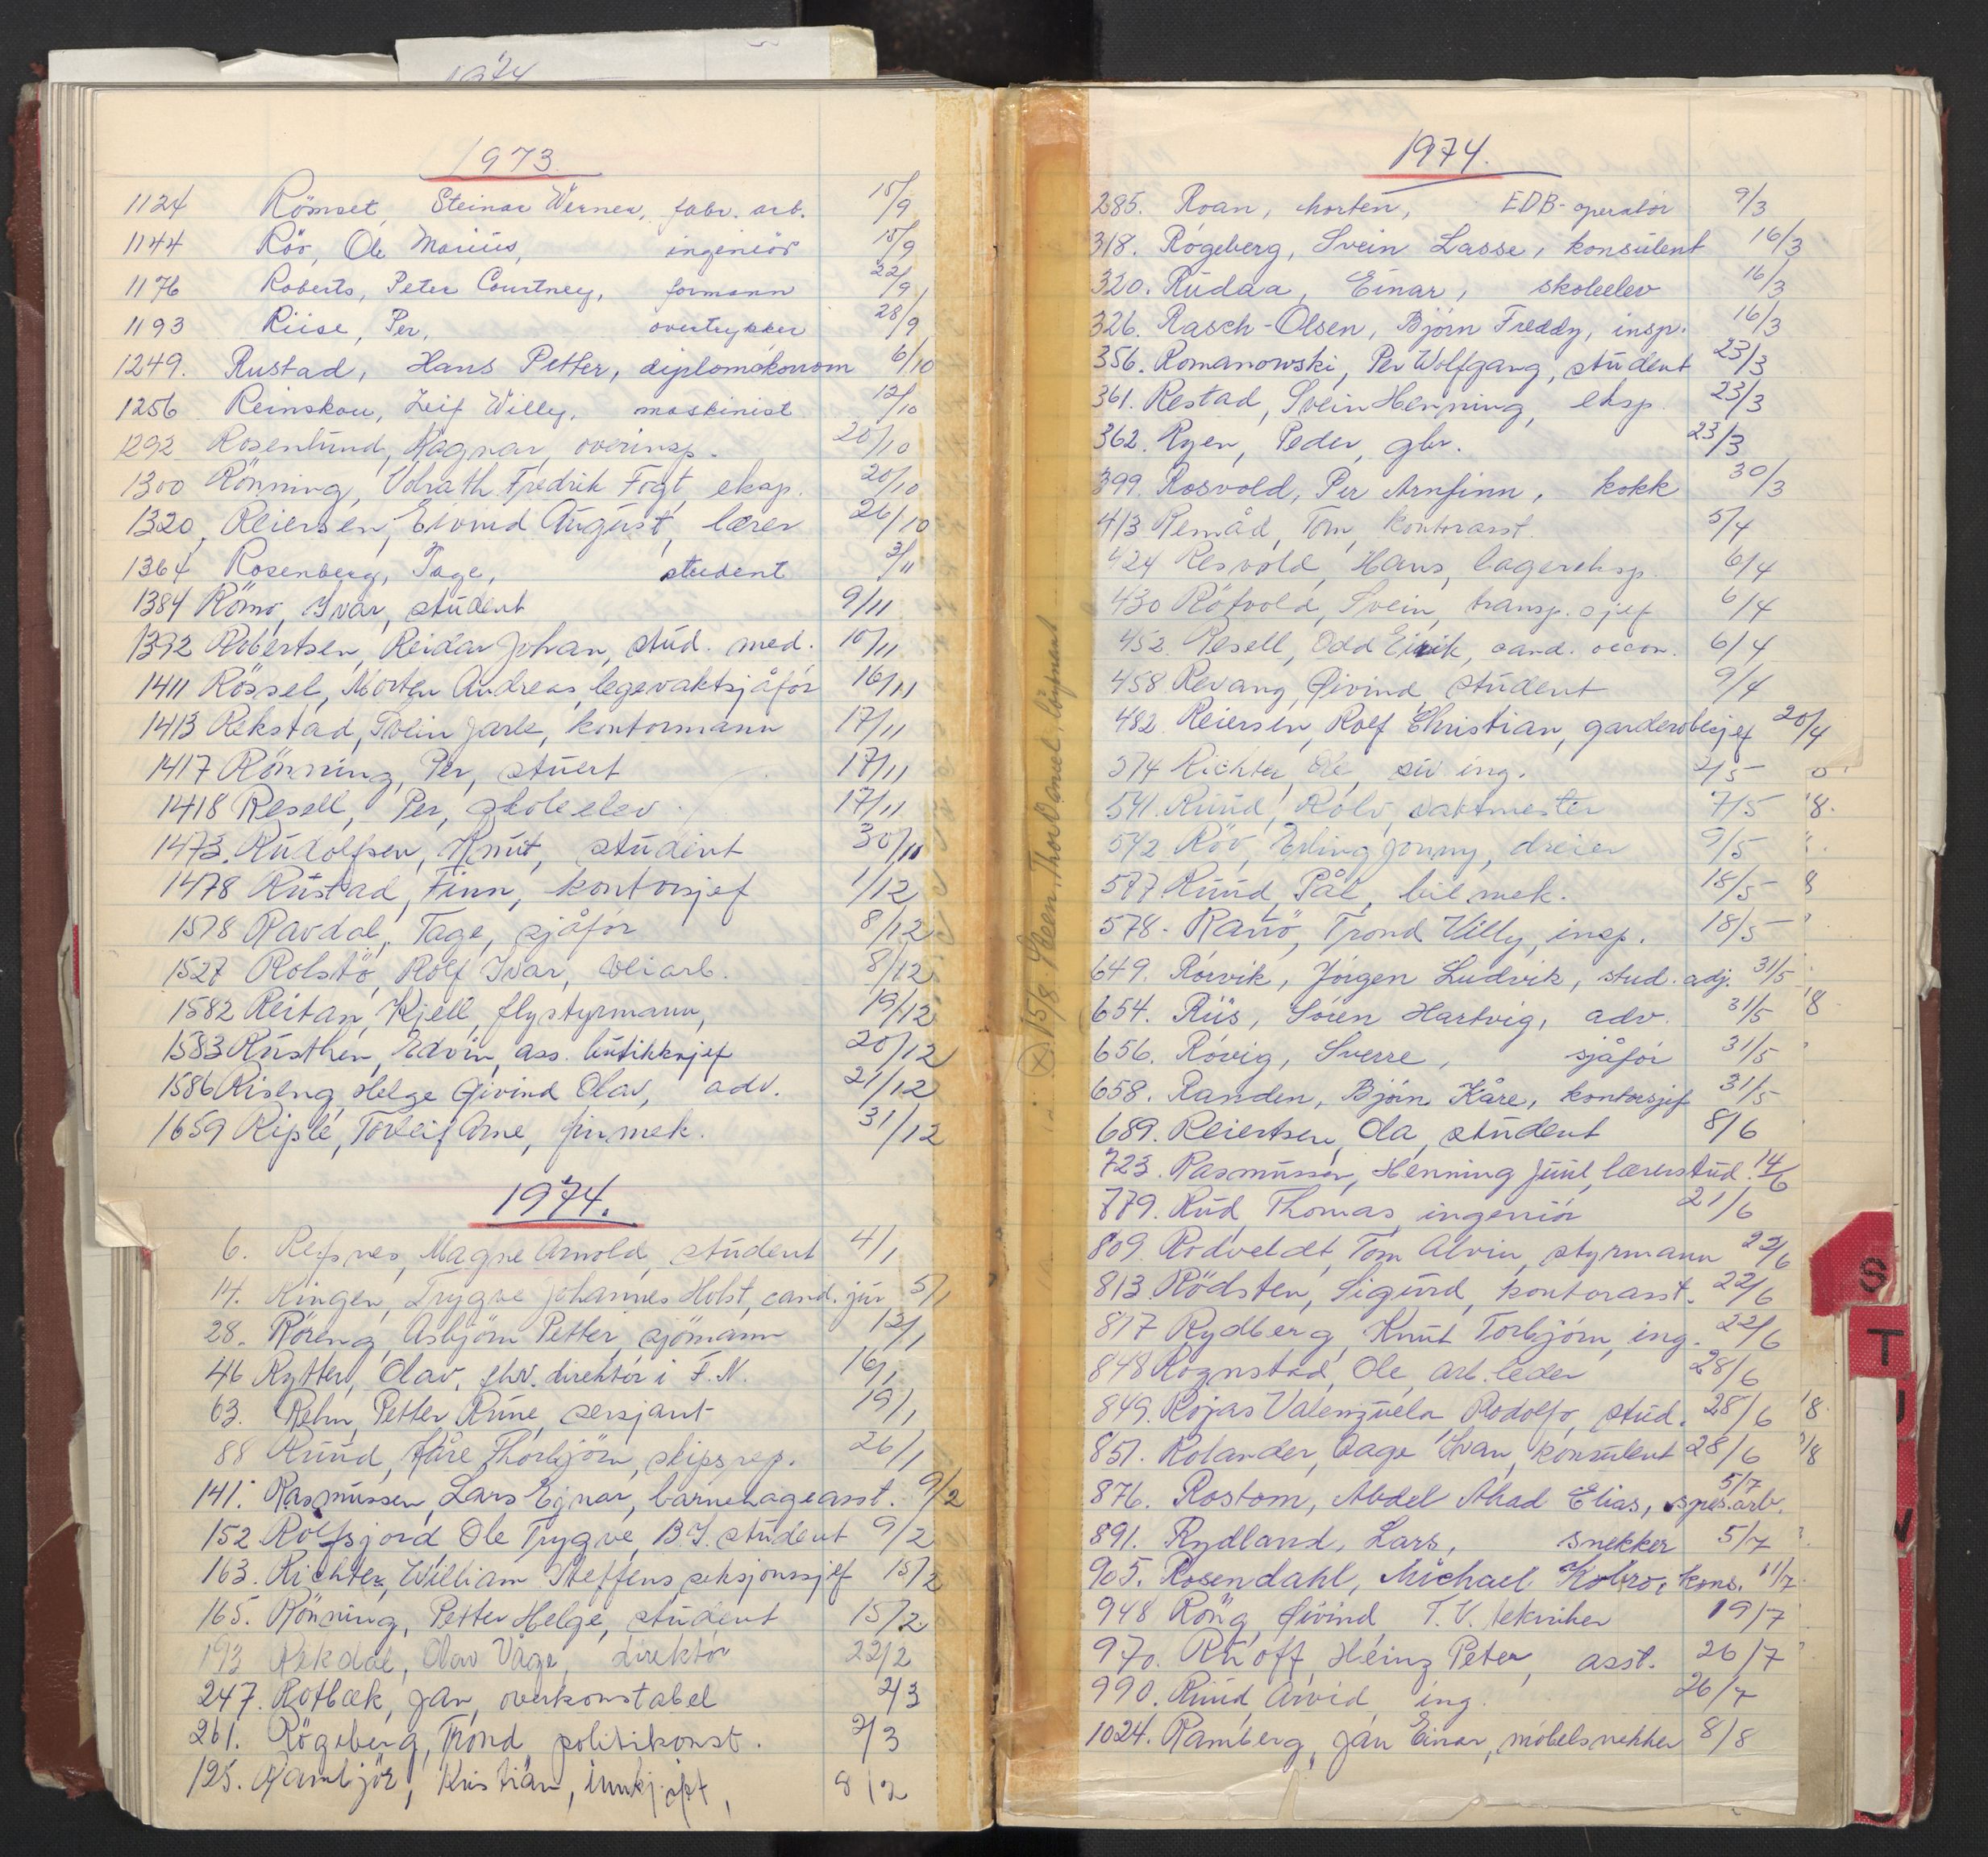 1974
1973.
1124 Römset, Steinar Werner, fabr. arb. 15/9
1144 Röv, Ole Marius, ingeniör 15/9
1176 Roberts, Peter Courtney, formann 22/9
1193 Riise, Per, overtrykker 28/9
1249. Rustad, Hans Petter, diplomökonom 6/10
1256 Reinskou, Leif Willy, maskinist 12/10
1292 Rosenlund, Ragnar, overinsp. 20/10
1300 Rönning, Volrath Fredrik Fogt, eksp. 20/10
1320, Reiersen, Eivind August, lærer 26/10
1364 Rosenberg, Tage, student 3/11
1384 Römo, Ivar, student 9/11
1392 Robertsen, Reidar Johan, stud. med. 10/11
1411 Rössel, Morten Andreas, legevaktsjåför 16/11
1413 Rekstad, Svein Jarle, kontormann 17/11
1417 Rönning, Per, stuert 17/11
1418 Resell, Per, skoleelev 17/11
1473. Rudolfsen, Knut, student 30/11
1478 Rustad, Finn, kontorsjef 1/12
1518 Ravdal, Tage, sjåför 8/12
1527 Rolstö, Rolf Ivar, veiarb. 8/12
1582 Reitan, Kjell, flystyrmann, 19/12
1583 Rusthen, Edvin, ass. butikksjef 20/12
1586 Riseng, Helge Øivind Olav, adv. 21/12
1659 Riple, Torleif Arne, finmek. 31/12
1974.
6. Refsnes, Magne Arnold, student 4/1
14. Ringen, Trygve Johannes Holst, cand. jur 5/1
28. Röreng, Asbjörn Petter, sjömann 12/1
46 Rytter, Olav, fhv. direktör i F.N. 16/1
63. Rehn, Petter Rune, sersjant 19/1
88 Ruud, Kåre Thorbjörn, skipsrep. 26/1
141. Rasmussen, Lars Ejnar, barnehageasst. 9/2
152 Rolfsjord Ole Trygve, B.I. student 9/2
163. Richter, William Steffens, seksjonssjef 15/2
165. Rönning, Petter Helge, student 15/2
193 Rekdal, Olav Våge, direktör 22/2
247. Rotbæk, Jan, overkonstabel 2/3
261. Rögeberg, Trond politikonst. 2/3
125. Rambjör, Kristian, 8/2
15/8. Steen, Thor Daniel, löytnant
1974.
285. Roan, Morten, EDB-operatör 9/3
318. Rögeberg, Svein Lasse, konsulent 16/3
320. Rudaa, Einar, skoleelev 16/3
326. Rasch-Olsen, Björn Freddy, insp. 16/3
356. Romanowski, Per Wolfgang, student 23/3
361. Restad, Svein Henning, eksp. 23/3
362. Ryen, Peder, gbr. 23/3
399. Rosvold, Per Arnfinn, kokk 30/3
413 Remåd, Tom, kontorasst. 5/4
424 Resvold, Hans, lagereksp. 6/4
430 Röfvold, Svein, transp. sjef 6/4
452. Resell, Odd Eirik, cand. oecon. 6/4
458 Revang, Øivind, student 9/4
482. Reiersen, Rolf Christian, garderobesjef 20/4
514 Richter, Ole, siv ing. 2/5
541. Ruud, Rolv, vaktmester 7/5 8.
542 Röv, Erling Jonny, dreier 9/5
577 Ruud, Pål, bilmek. 18/5 8
578. Ranö, Trond Willy, insp. 18/5
649. Rörvik, Jörgen Ludvik, stud. adj. 31/5
654. Riis, Sören Hartvig, adv. 31/5 8
656. Rövig, Sverre, sjåför 31/5
658. Randen, Björn Kåre, kontorsjef 31/5
689. Reiertsen, Ola, student 8/6
723. Rasmussen, Henning Juul, lærerstud. 14/6
779. Rud, Thomas, ingeniör 21/6
809. Rodveldt, Tom Alvin, styrmann 22/6
813 Rödsten, Sigurd, kontorasst. 22/6
817 Rydberg, Knut Torbjörn, ing. 22/6
848 Rognstad, Ole, arb. leder 28/6
849. Rojas Valenzuela Rodolfo, stud. 28/6 8
851. Rolander, Aage Ivan, konsulent 28/6 8
876. Rostom, Abdel Ahad Elias, spes. arb. 5/7
891. Rydland, Lars, snekker 5/7
905. Rosendahl, Michael Kobro, kons. 11/7
948 Röng, Øivind, T.V. tekniker 19/7
970. Ruoff, Heinz Peter, asst. 26/7
990. Ruud, Arvid, ing. 26/7
1024. Ramberg, Jan Einar, möbelsnekker 8/8
S
T